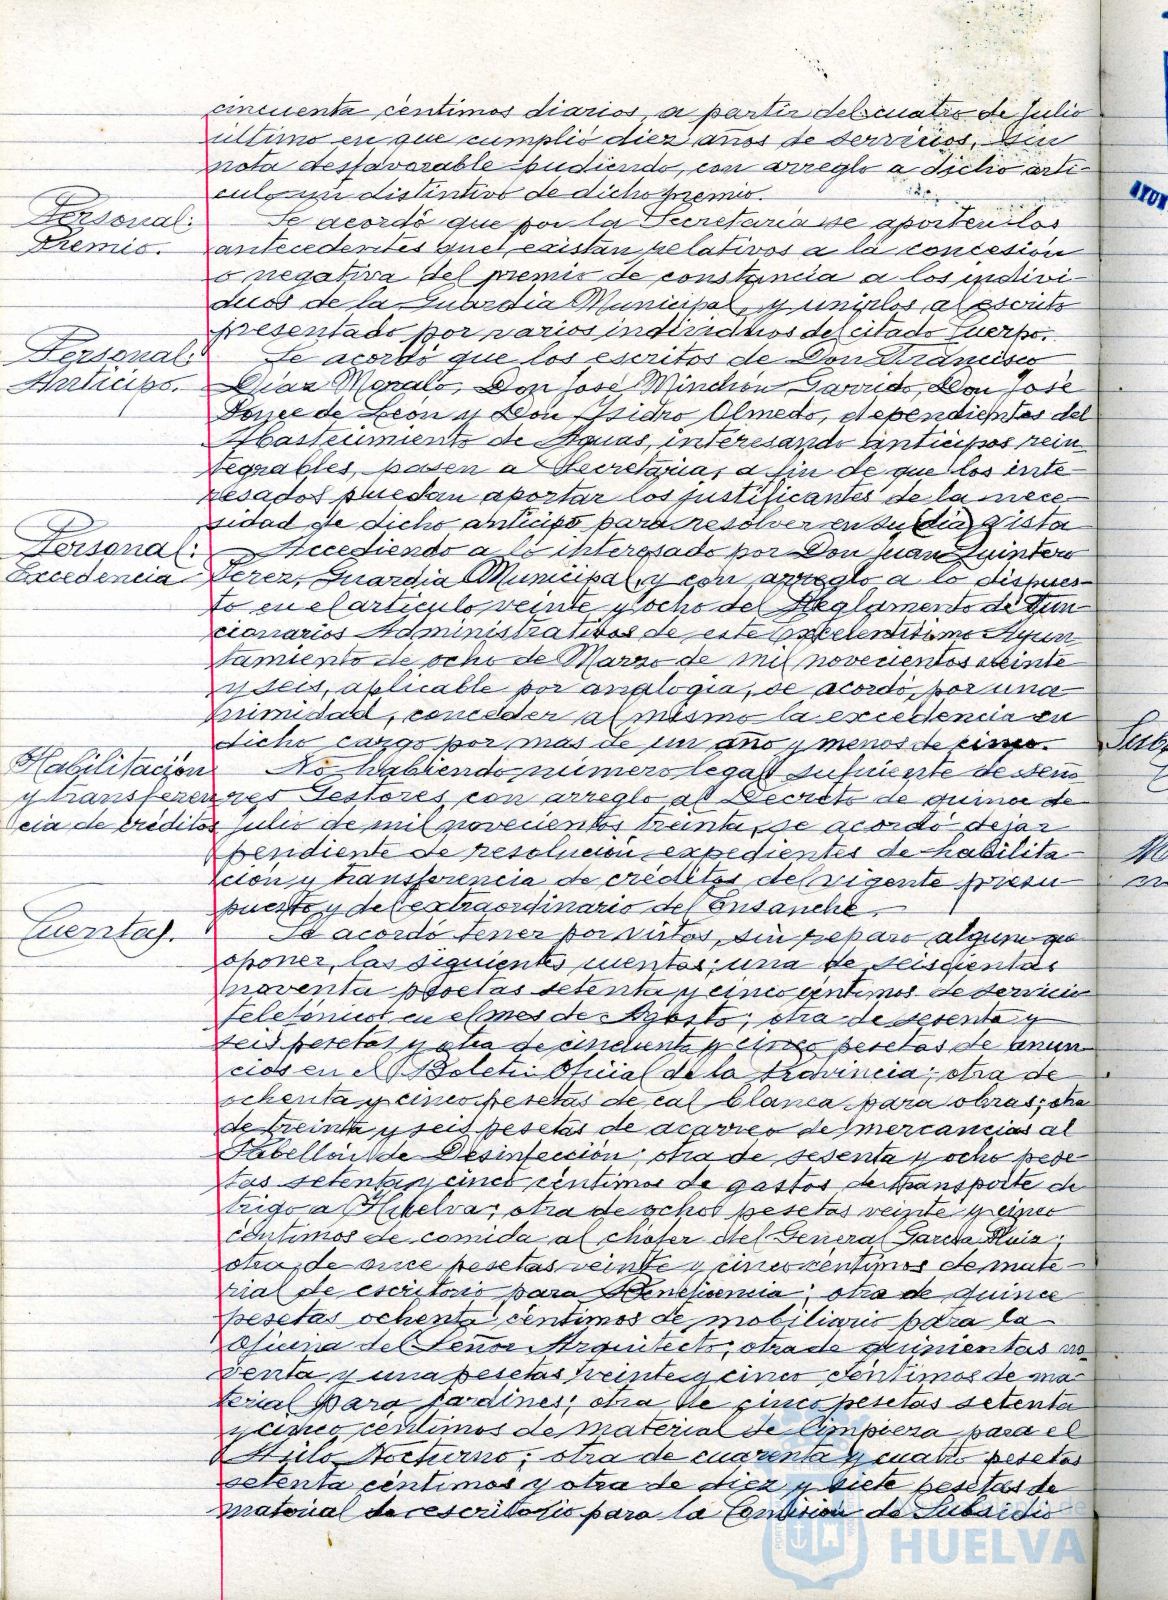 cincuenta céntimos diarios, a partir del cuatro de Julio
último en que cumplió diez años de servicios, sin
nota desfavorable pudiendo, con arreglo a dicho artí-
culo un distintivo de dicho premio.
Personal:
Premio.
Se acordó que por la Secretaría se aporten los
antecedentes que existan relativos a la concesión
o negativa del premio de constancia a los indivi-
duos de la Guardia Municipal, y unirlos al escrito
presentado por varios individuos del citado Cuerpo.
Personal:
Anticipo.
Se acordó que los escritos de Don Francisco
Díaz Moralo, Don José Minchón Garrido, Don José
Ponce de León y Don Isidro Olmedo, dependientes del
Abastecimiento de Aguas, interesando anticipos rein
tegrables, pasen a Secretaría, a fin de que los inte-
resados puedan aportar los justificantes de la nece-
sidad de dicho anticipo para resolver en su (día) vista
Personal:
Excedencia
Accediendo a lo interesado por Don Juan Quintero
Perez, Guardia Municipal, y con arreglo a lo dispues-
to en el artículo veinte y ocho del Reglamento de Fun-
cionarios Administrativos de este Excelentísimo Ayun
tamiento de ocho de Marzo de mil novecientos veinte
y seis, aplicable por analogía, se acordó, por una-
nimidad, conceder al mismo la excedencia en
dicho cargo por mas de un año y menos de cinco.
Habilitación
y transferen
cia de créditos
No habiendo número legal suficiente de seño
res Gestores, con arreglo al Decreto de quince de
Julio de mil novecientos treinta, se acordó dejar
pendiente de resolución expedientes de habilita-
ción y transferencia de créditos del vigente presu-
puesto y del extraordinario del Ensanche.
Cuentas.
Se acordó tener por vistas, sin reparo alguno que
oponer, las siguientes cuentas: una de seiscientas
noventa pesetas setenta y cinco céntimos de servicio
telefónico en el mes de Agosto; otra de sesenta y
seis pesetas y otra de cincuenta y cinco pesetas de anun
cios en el Boletín Oficial de la Provincia; otra de
ochenta y cinco pesetas de cal blanca para obras; otra
de treinta y seis pesetas de acarreo de mercancias al
Pabellón de Desinfección; otra de sesenta y ocho pese-
tas setenta y cinco céntimos de gastos de transporte de
trigo a Huelva; otra de ocho pesetas veinte y cinco
céntimos de comida al chófer del General García Ruiz;
otra de once pesetas veinte y cinco céntimos de mate-
rial de escritorio para Beneficencia; otra de quince
pesetas ochenta céntimos de mobiliario para la
Oficina del Señor Arquitecto; otra de quinientas no-
venta y una pesetas veinte y cinco céntimos de ma-
terial para jardines; otra de cinco pesetas setenta
y cinco céntimos de material de limpieza para el
Asilo Nocturno; otra de cuarenta y cuatro pesetas
setenta céntimos y otra de diez y siete pesetas de
material de escritorio para la Comisión de Subsidio
HUELVA